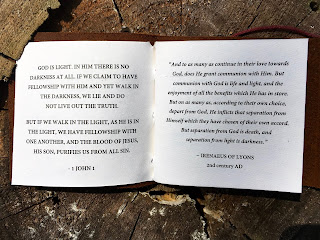 GOD IS LIGHT. IN HIM THERE IS NO
DARKNESS AT ALL. IF WE CLAIM TO HAVE
FELLOWSHIP WITH HIM AND YET WALK IN
THE DARKNESS, WE LIE AND DO
NOT LIVE OUT THE TRUTH.
BUT IF WE WALK IN THE LIGHT, AS HE IS IN
THE LIGHT, WE HAVE FELLOWSHIP WITH
ONE ANOTHER, AND THE BLOOD OF JESUS,
HIS SON, PURIFIES US FROM ALL SIN.
- 1 JOHN 1
"And to as many as continue in their love towards
God, does He grant communion with Him. But
communion with God is life and light, and the
enjoyment of all the benefits which He has in store.
But on as many as, according to their own choice,
depart from God, He inflicts that separation from
Himself which they have chosen of their own accord.
But separation from God is death, and
separation from light is darkness."
- IRENAEUS OF LYONS
2nd century AD